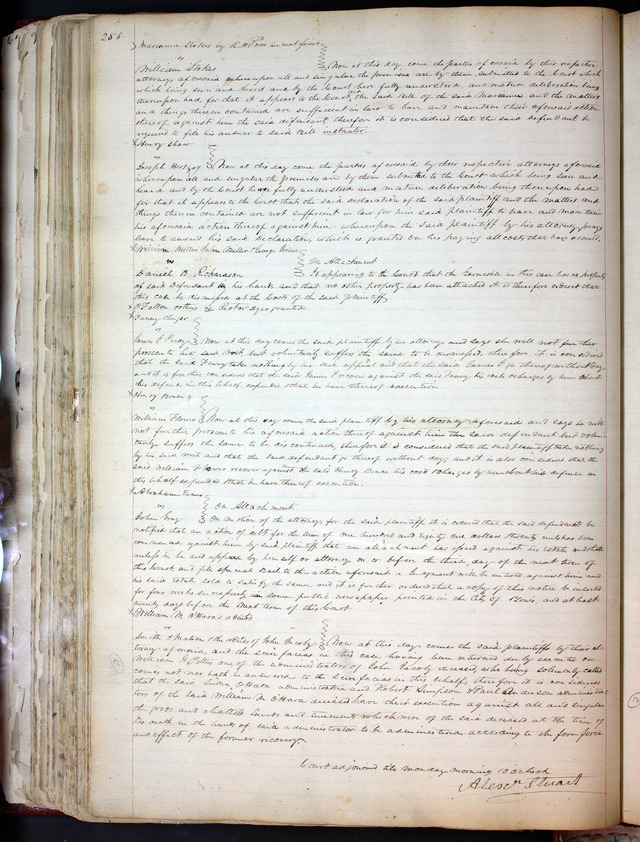 286
Marianne Stokes by
vs
William Stokes Now at this day come the parties aforesaid by their respective
attorneys aforesaid whereupon all and singular the premises are by them submitted to the Court which
which being seen and heard and by the Court here fully understood, and mature deliberation being
thereupon had, for that it appears to the Court, the said Bill of the said Marianne and the matters
and things therein contained are sufficient in law to have and maintain their aforesaid action
thereof against him the said defendant therefore it is considered that the said Defendant be
required to file his answer to said Bill instanter.
Henry Shaw
vs
Joseph Hertzog Now at this day come the parties aforesaid by their respective attorneys aforesaid
whereupon all and singular the premises are by them submitted to the Court which being seen and
heard and by the Court here fully understood and mature deliberation being thereupon had
for that it appears to the Court that the said declaration of the said plaintiff and the matters and
things therein contained are not sufficient in law for him said plaintiff to have and maintain
his aforesaid action thereof against him whereupon the said plaintiff by his attorney prays
leave to amend his said Declaration, which is granted on his paying all cost that has accrued.
William Miller John Miller George
vs On Attachment
Daniel B Richardson It appearing to the Court that the Garnishee in this case has no property
of said Defendant in his hands and that no other property has been attached it is therefore ordered that
this case be dismissed at the Costs of the said plaintiffs
Fanny
vs
James Purdy Now at this day comes the said plaintiff by her attorney and says she will not further
prosecute her said Writ but voluntarily suffers the same to be dismissed, therefore it is considered
that the said Fanny take nothing by her said appeal and that the said James go thereof without day
and it is further considered that the said James recover against the said Fanny his costs & charges by him about
his defence in this behalf expended & that he have thereof execution
Henry
vs
William Flower Now at this day comes the said plaintiff by his attorney aforesaid and says he will
not further prosecute his aforesaid action thereof against him the said defendant but volun-
tarily suffers the same to be discontinued, therefore it is considered that the said plaintiff take nothing
by his said writ and that the said defendant go thereof without day, and it is also considered that the
said William Flower recover against the said Henry his cost & charges by him about his defence in
this behalf expended & that he have thereof execution.
Abraham Evans
vs On Attachment
John Gray On motion of the attorney for the said plaintiff it is ordered that the said defendant be
notified that an action of debt for the sum of one hundred and eighty one dollars thirty cents has been
commenced against him by said plaintiff that an attachment has issued against his estate and that
unless he be and appear by himself or attorney on or before the third day of the next term of
this Court, and file special Bail to the action aforesaid a Judgment will be entered against him and
his said Estate sold to satisfy the same, and it is further ordered that a copy of this notice be inserted
for four weeks successively in some public newspaper printed in the City of St Louis, and at least
twenty days before the next term of this Court
William M O'Hara's Admrs
vs
Smith & Watson & the admrs of John Jacoby Now at this day comes the said plaintiffs by their at-
torney aforesaid, and the scire facias in this case having been returned duly executed on
William one of the administrators of John Jacoby deceased, who being solemnly called
comes not nor hath he answered to the scire facias in this behalf, therefore it is considered
that the said O'Hara administratrix and Robert Simpson & Paul Anderson administra-
tors of the said William M O'Hara deceased have their execution against all and singular
the goods and chattels lands and tenements which were of the said deceased at the time of
his death in the hands of said administrator to be administered according to the form force
and effect of the former recovery
Court adjourned till Monday morning 10 o'clock
Alexr Stuart